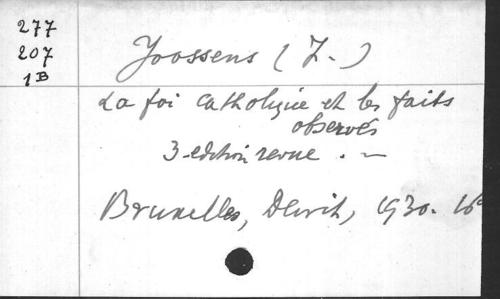 277
207
1B
Joossens (J.)
La foi catholique et les faits
observés
3e edition revue . —
Bruxelles, Dewit, 1930. 16°